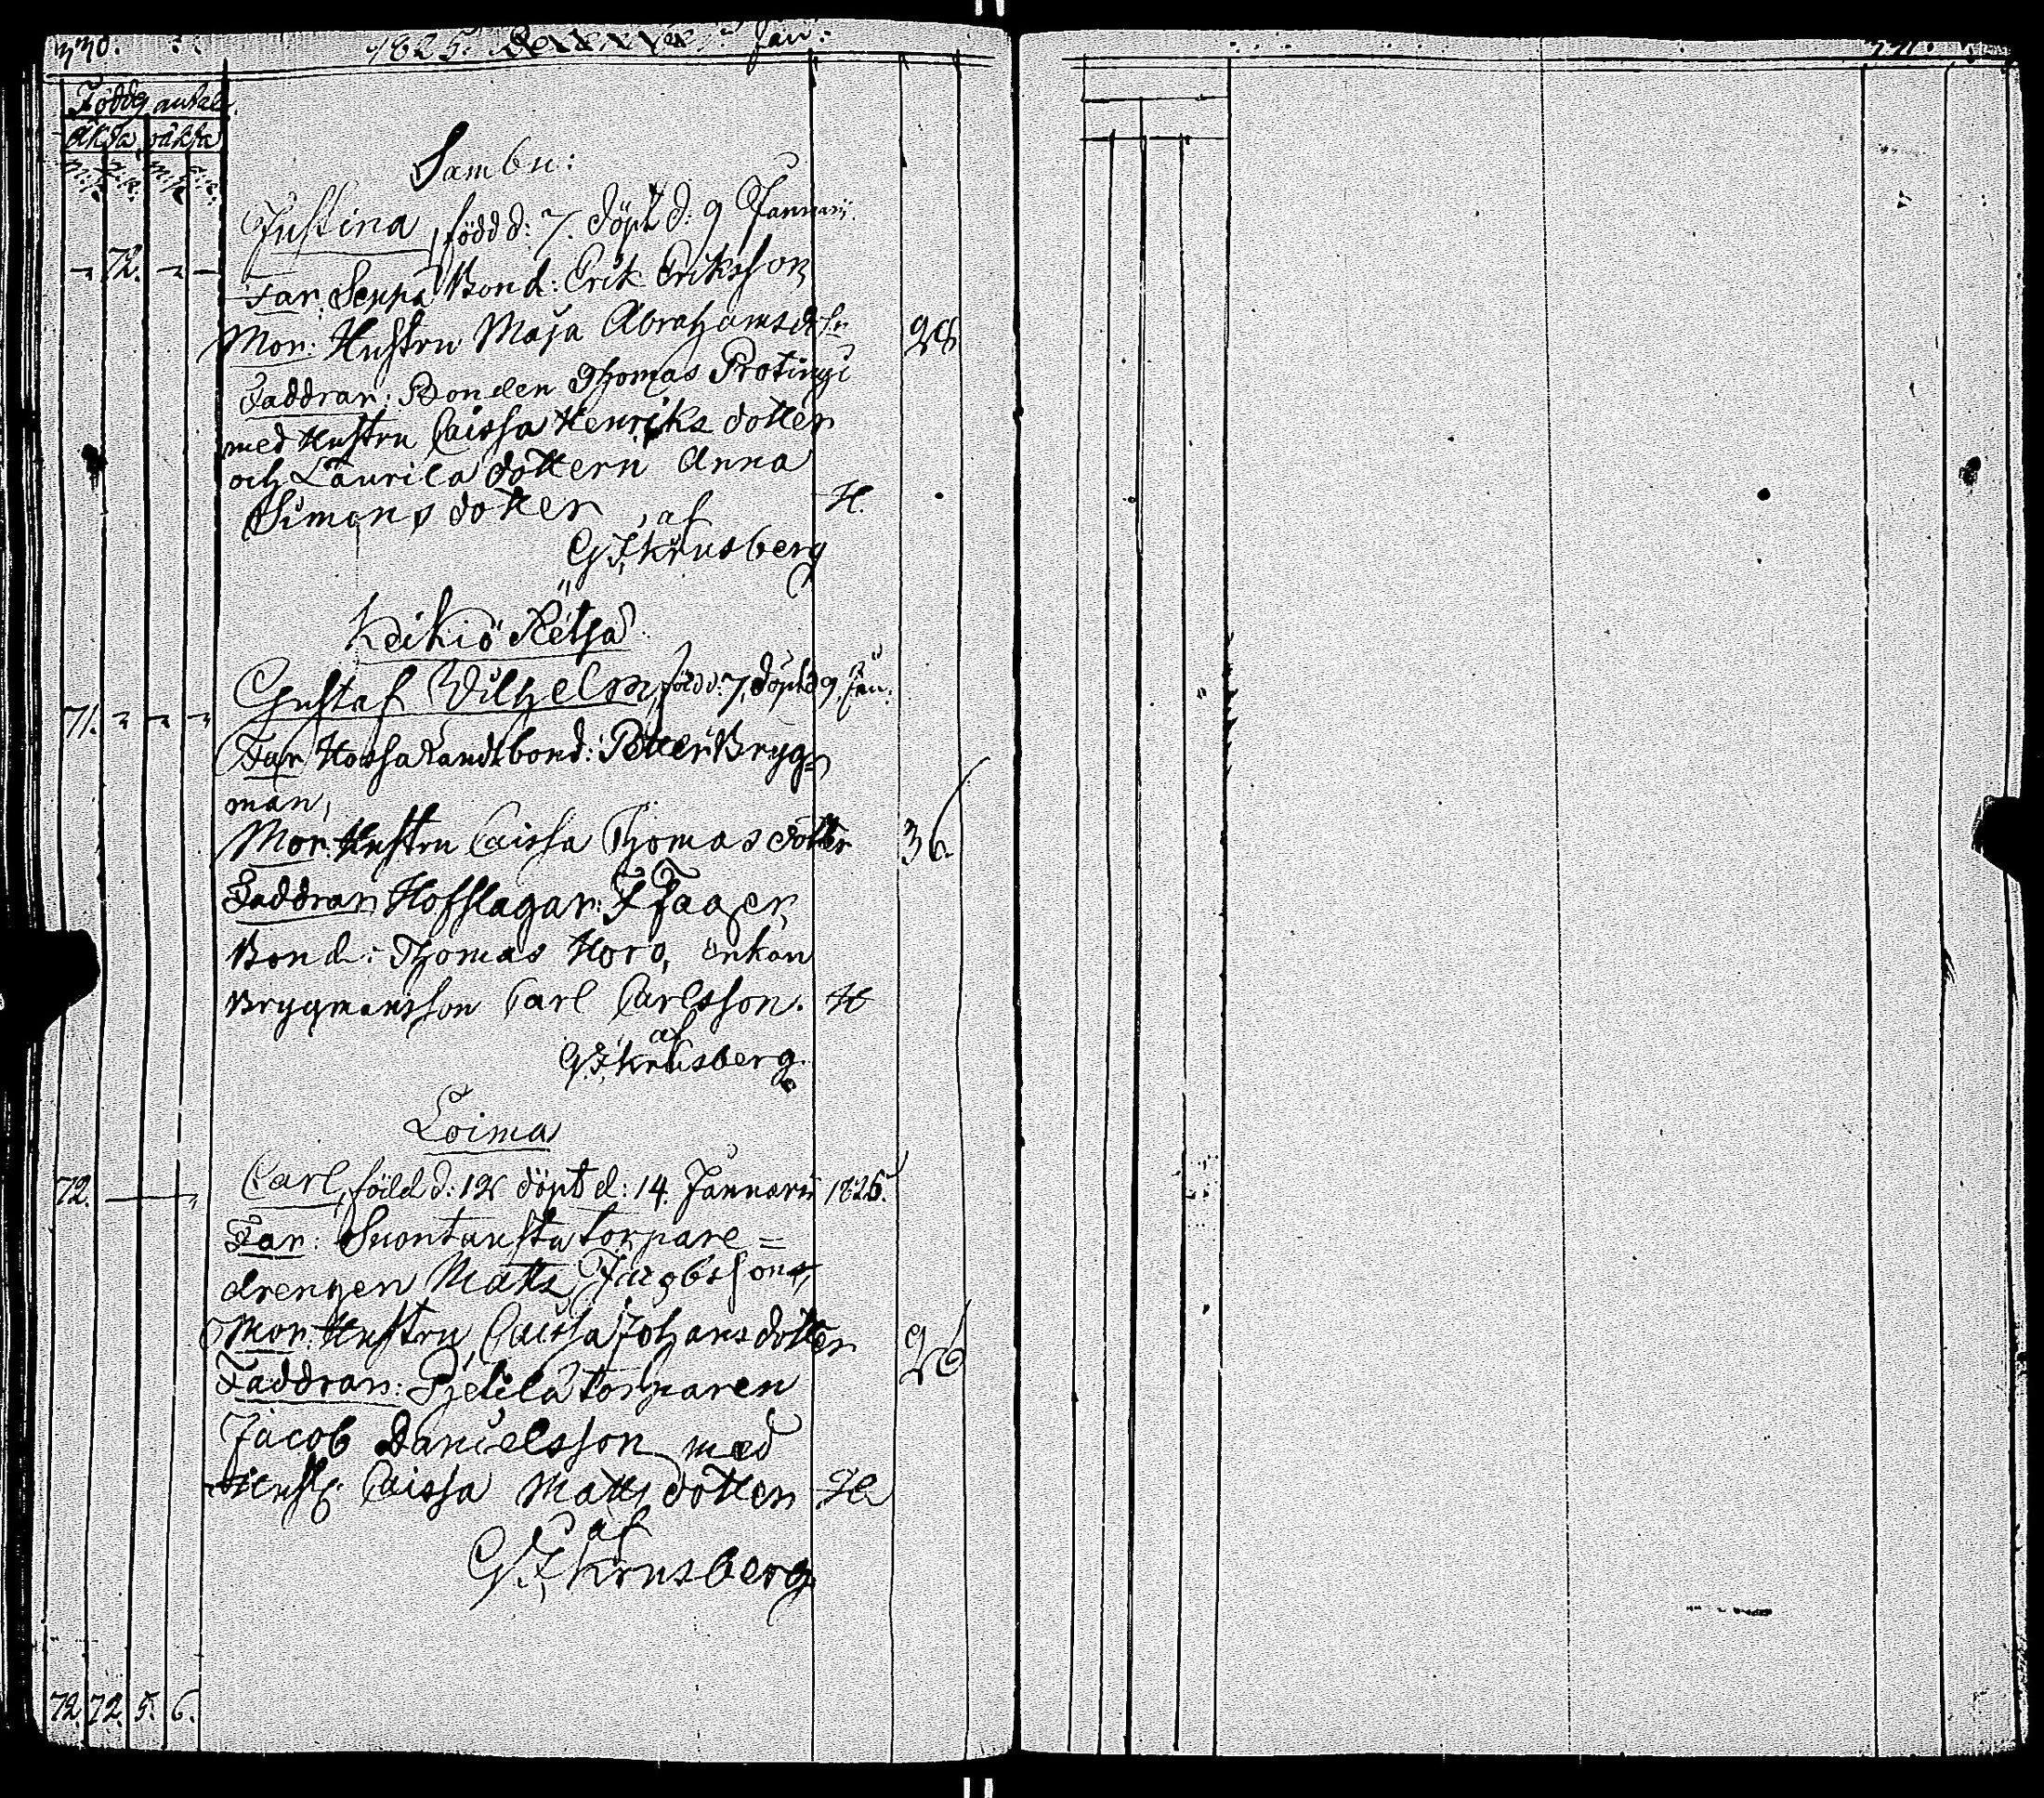 330. 1825. Jan:
Föddes antal.
äkta oäkta
Sambu:
Justina, född d: 7. döpt d: 9 Januarii
72.
Far. Seppä Bond: Erik Eriksson
Mor: Hustru Maja Abrahamsdotter 28
Faddrar: Bonden Thomas Protingi
med Hustru Caissa Henriks dotter
och Laurila dottern Anna
Simons dotter H.
, af
G. F. Krusberg
Keikiö
Gustaf Wilhelm, född d: 7, döpt d 9, Jan.
71.
Far Landtbond: Petter Bryg=
man,
Mor. Hustru Caissa Thomas dotter 36
Faddrar Hofslagar:
Bond: Thomas Horo, enkan
Brygmansson Carl Carlsson. H
af
G. F. Krusberg.
Loima
72. Carl, född d: 12 döpt d: 14. Januarii 1826.
Far: Suontausta torpare=
drengen Matts Jacobsson,
Mor. Hustru, Caissa Johansdotter 26
Faddrar: torparen
Jacob Danielsson med
Hust: Caissa Matts dotter H
af
G. F. Krusberg
72. 72. 5. 6.